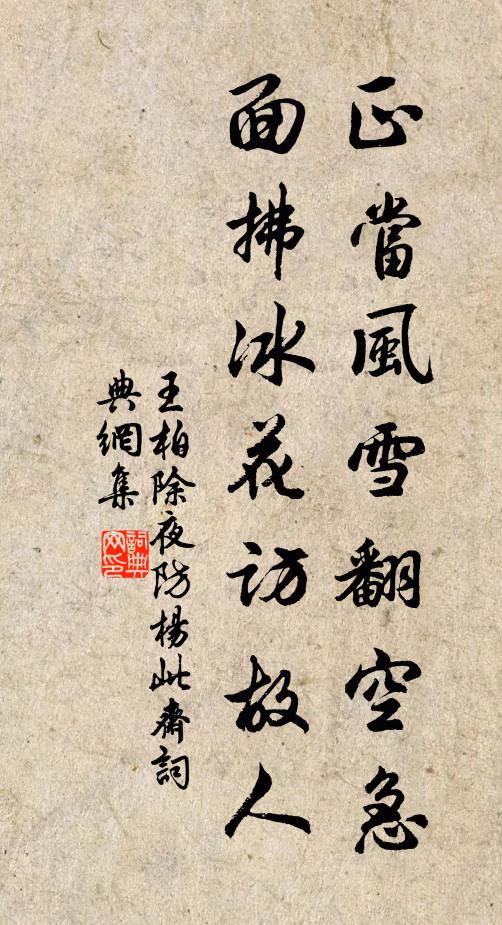 正當風雪翻空急
面拂冰花訪故人
王柏除夜防楊此齋詞
典網集
詞典
网印